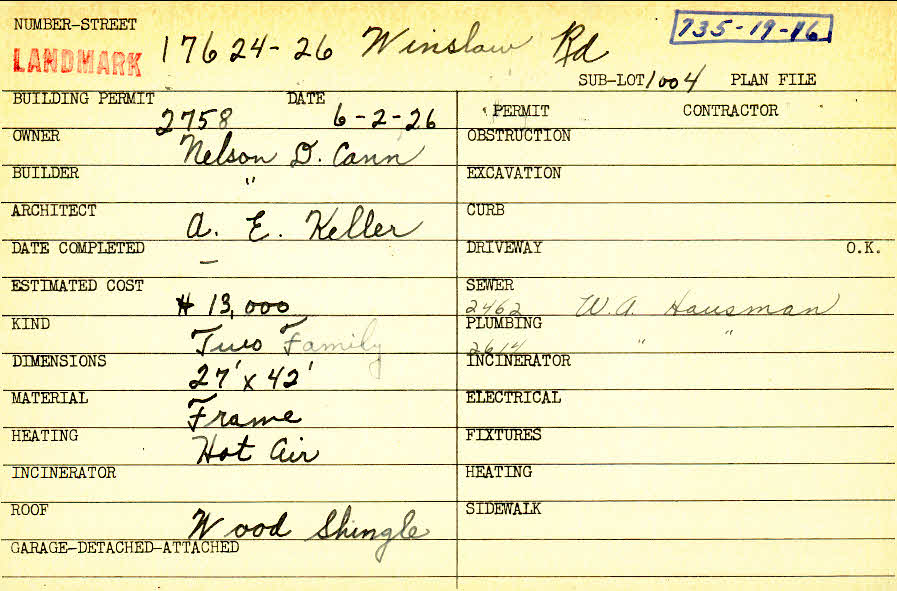 NUMBER-STREET 17624-26 Winslow Rd 735-19-16
LANDMARK
SUB-LOT 1004 PLAN FILE
BUILDING PERMIT 2758 DATE 6-2-26
OWNER Nelson D. Cann
BUILDER "
ARCHITECT A. E. Keller
DATE COMPLETED —
ESTIMATED COST $ 13,000
KIND Two Family
DIMENSIONS 27' x 42'
MATERIAL Frame
HEATING Hot Air
INCINERATOR
ROOF Wood Shingle
GARAGE-DETACHED-ATTACHED
PERMIT CONTRACTOR
OBSTRUCTION
EXCAVATION
CURB
DRIVEWAY O.K.
SEWER 2462 W.A. Hausman
PLUMBING 2614 " "
INCINERATOR
ELECTRICAL
FIXTURES
HEATING
SIDEWALK